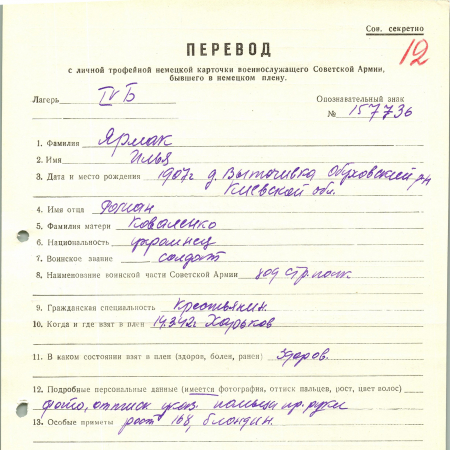 Сов. секретно
12
ПЕРЕВОД
с личной трофейной немецкой карточки военнослужащего Советской Армии,
бывшего в немецком плену.
Лагерь IV Б Опознавательный знак
№ 157736
1. Фамилия Ярмак
2. Имя Илья
3. Дата и место рождения 1907г д. Вытачивка Обуховский р-н
Киевской обл.
4. Имя отца
5. Фамилия матери Коваленко
6. Национальность украинец
7. Воинское звание солдат
8. Наименование воинской части Советской Армии стр. полк
9. Гражданская специальность Крестьянин.
10. Когда и где взят в плен 14.3.42г Харьков
11. В каком состоянии взят в плен (здоров, болен, ранен) Здоров.
12. Подробные персональные данные (имеется фотография, оттиск пальцев, рост, цвет волос)
фото, оттиск указ. пальца пр. руки
13. Особые приметы рост 168, блондин.